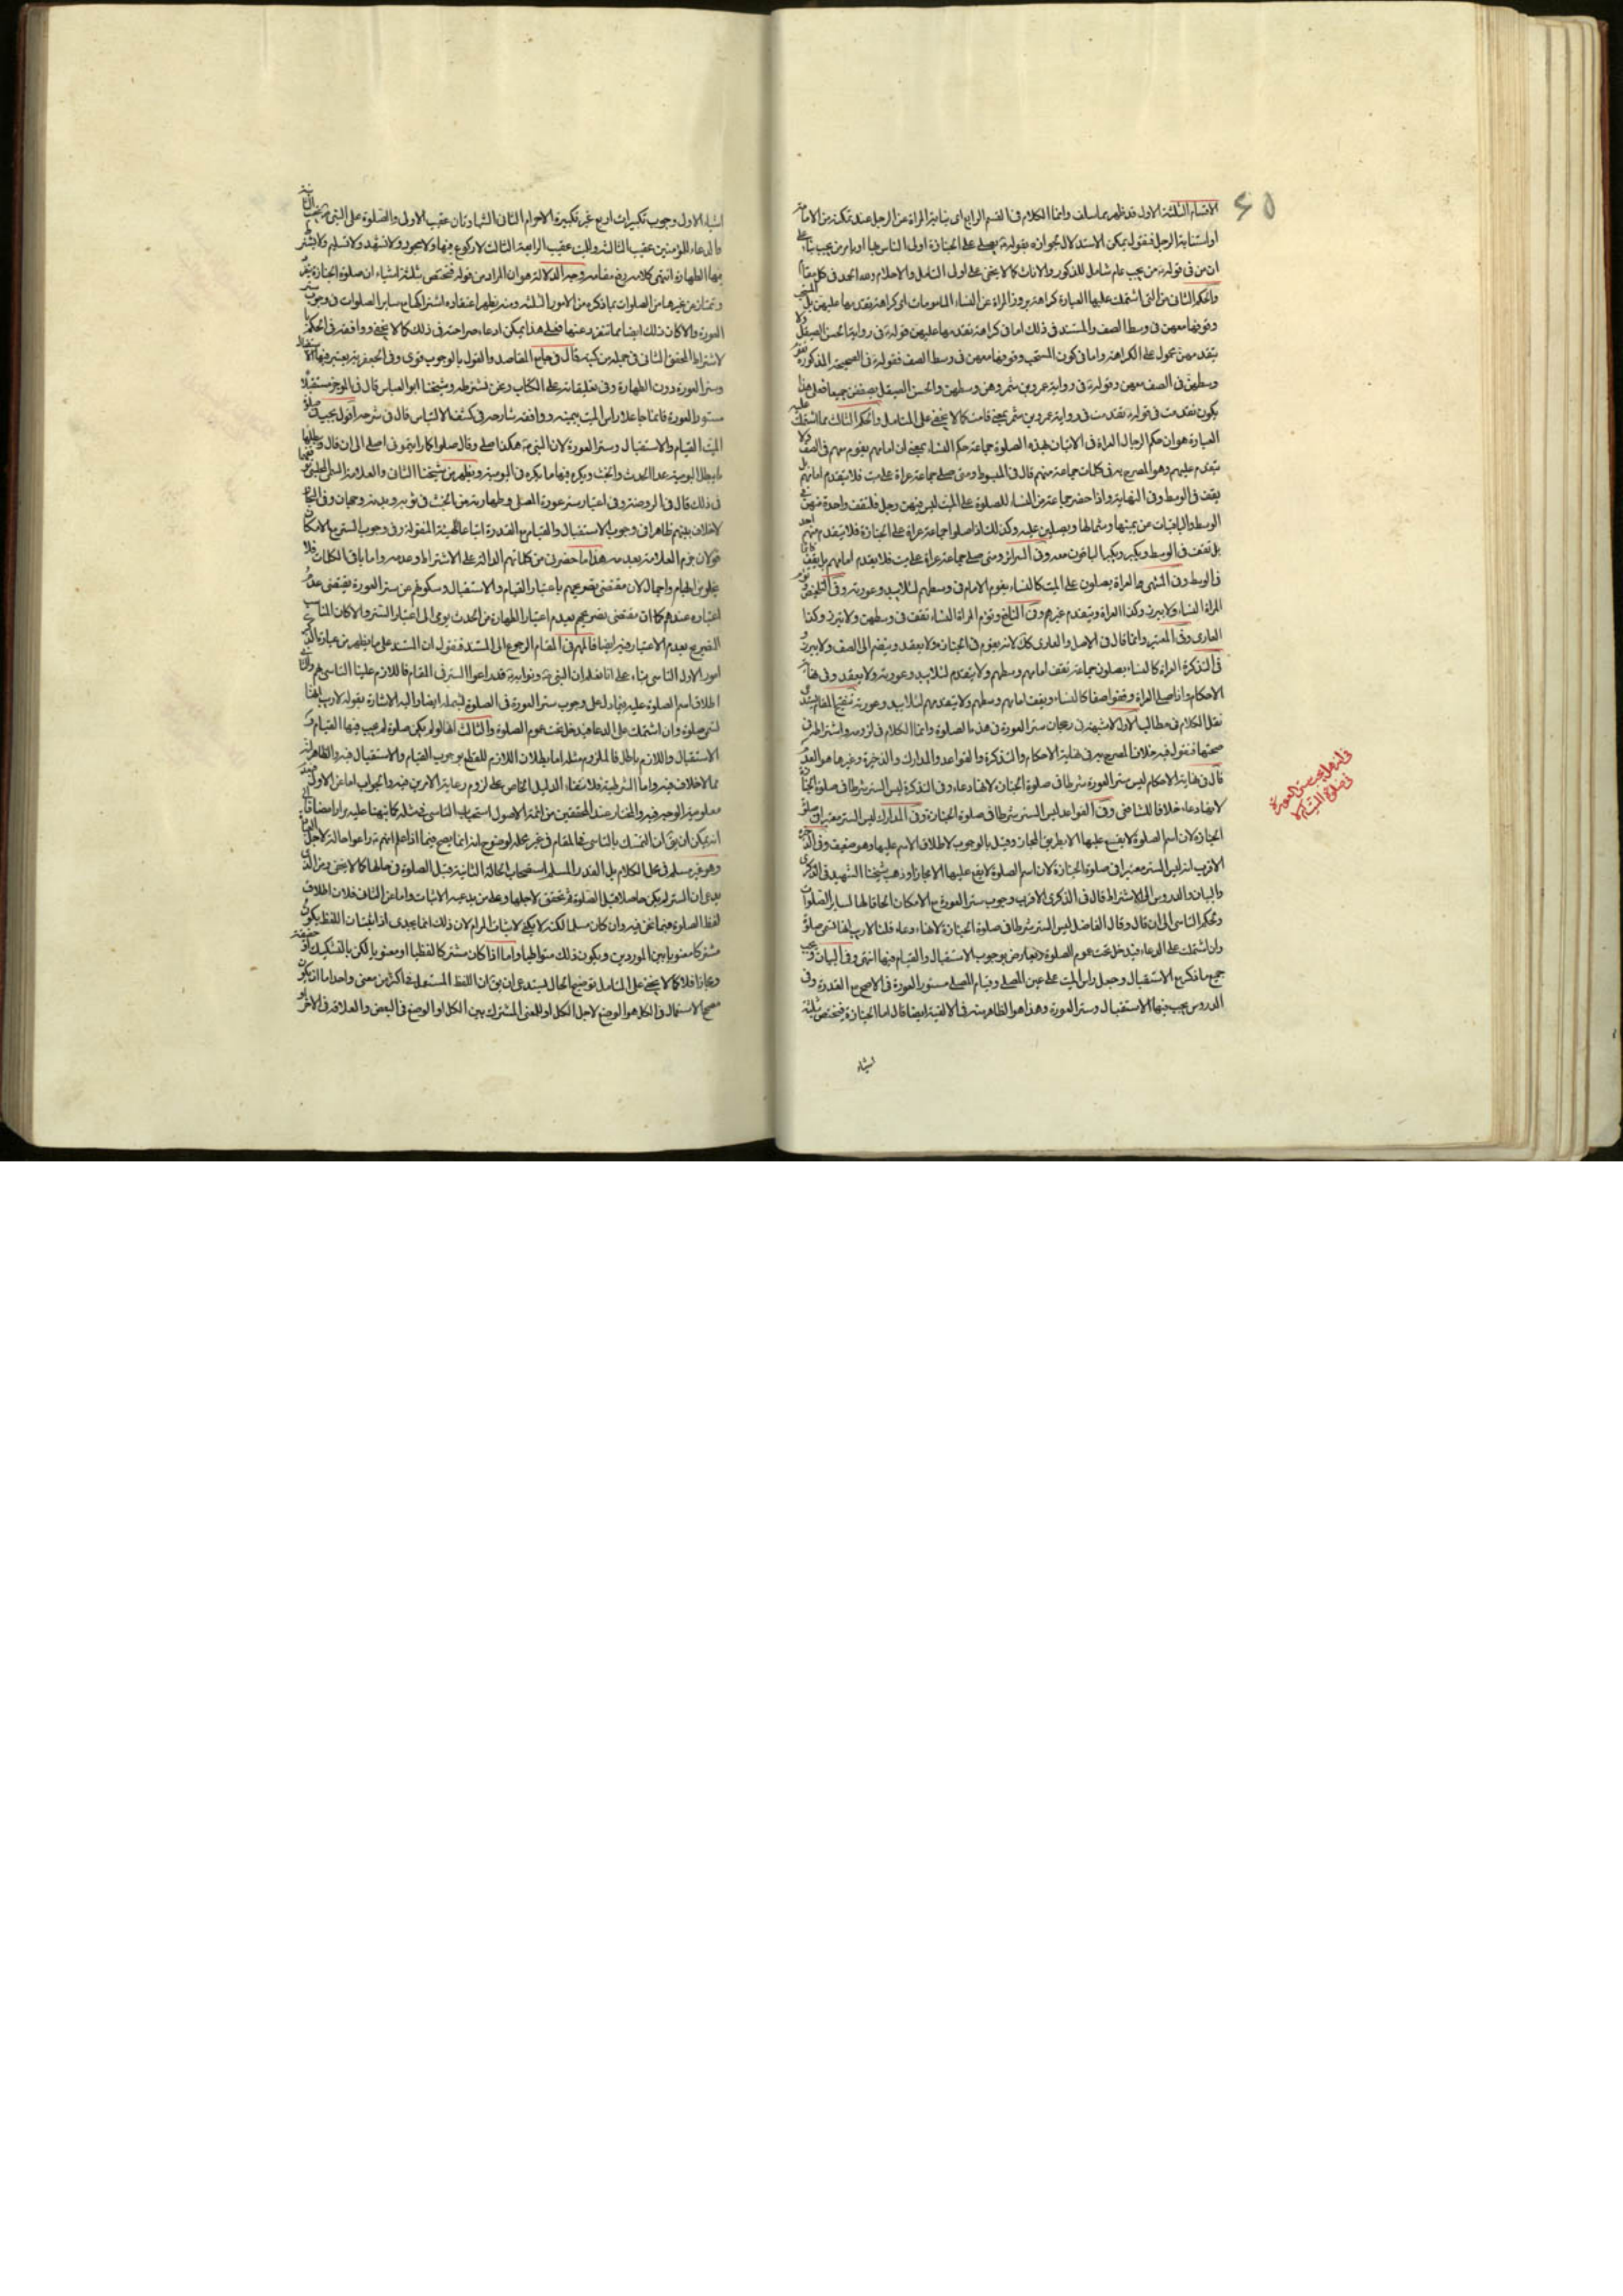 ٤٥
الاقسام الثلثة الاول قد ظهر مما سلف وانما الكلام في القسم الرابع اى نيابة المراة عن الرجل عند تمكنه من الامامة
او استنابة الرجل فنقول يمكن الاستدلال بجوازه بقوله يصلى على الجنازة اولى الناس بها او يامر من يحب بناء على
ان من في قوله من يحب عام شامل للذكور والاناث كما لا يخفى على اولى التامل والاحلام وله الحمد في كل مقام
والحكم الثانى من التى اشتملت عليها العبارة كراهة بروز المراة عن النساء المامومات اى كراهة تقدمها عليهن بل المستحب
وقوفها معهن في وسط الصف والمستند في ذلك اما في كراهة تقدمها عليهن قوله في رواية الحسن الصيقل ولا
يتقدمهن محمول على الكراهة واما في كون المستحب وقوفها معهن في وسط الصف فقوله في الصحيحة المذكورة تقوم
وسطهن في الصف معهن وقوله في رواية عمرو بن شمر وهن وسطهن والحسن الصيقل يصففن جميعا فعلى هذا
يكون تقدمت في قوله تقدمت في رواية عمرو بن شمر بمعنى قامت كما لا يخفى على المتامل والحكم الثالث مما اشتملت عليه
العبارة هو ان حكم الرجال العراة في الاتيان بهذه الصلوة جماعة حكم النساء بمعنى ان امامهم يقوم معهم في الصف ولا
يتقدم عليهم وهو المصرح به في كلمات جماعة منهم قال في المبسوط ومتى صلى جماعة عراة على ميت فلا يتقدم امامهم بل
يقف في الوسط وفي النهاية واذا حضر جماعة من النساء للصلوة على الميت ليس فيهن رجل فلتقف واحدة منهن في
الوسط والباقيات عن يمينها وشمالها ويصلين عليه وكذلك اذا صلوا جماعة عراة على الجنازة فلا يتقدم منهم احد
بل تقف في الوسط ويكبر ويكبر الباقون معه وفي السرائر ومتى صلى جماعة عراة على ميت فلا يتقدم امامهم بل يقف قائما
في الوسط وفي المنتهى والعراة يصلون على الميت كالنساء يقوم الامام في وسطهم لئلا يبدو عورته وفي التلخيص تؤم
المراة النساء ولا تبرز وكذا العراة ويتقدم غيرهم وفي النافع وتؤم المراة النساء تقف في وسطهن ولا تبرز وكذا
العارى وفي المعتبر وانما قال في الاصل والعارى كذلك لانه يقوم في الجنازة ولا يقعد وينضم الى الصف ولا يبرز و
في التذكرة العراة كالنساء يصلون جماعة تقف امامهم وسطهم ولا يتقدم لئلا يبدو عورته ولا يقعد وفي نهاية
الاحكام واذا صلى العراة وقفوا صفا كالنساء ويقف امامهم وسطهم ولا يتقدمهم لئلا يبدو عورته تنقيح المقام يستدعى
نقل الكلام في مطالب الاول لا شبهة في رجحان ستر العورة في هذه الصلوة وانما الكلام في لزومه واشتراطه في
صحتها فنقول فيه خلاف المصرح به في نهاية الاحكام والتذكرة والقواعد والمدارك والذخيرة وغيرها هو العدم
قال في نهاية الاحكام ليس ستر العورة شرطا في صلوة الجنازة لانها دعاء وفي التذكرة ليس الستر شرطا في صلوة الجنازة
لانها دعاء خلافا للشافعى وفي القواعد ليس الستر شرطا في صلوة الجنازة وفي المدارك ليس الستر معتبرا في صلوة
الجنازة لان اسم الصلوة لا يقع عليها الا بطريق المجاز وقيل بالوجوب لاطلاق الاسم عليها وهو ضعيف وفي الذخيرة
الاقرب انه ليس الستر معتبرا في صلوة الجنازة لان اسم الصلوة لا يقع عليها الا مجازا وذهب شيخنا الشهيد في الذكرى
والبيان والدروس الى الاشتراط قال في الذكرى الاقرب وجوب ستر العورة مع الامكان الحاقا لها لساير الصلوات
وبحكم التاسى الى ان قال وقال الفاضل ليس الستر شرطا في صلوة الجنازة لانها دعاء قلنا لا ريب انها تسمى صلوة
وان اشتملت على الدعاء فيدخل تحت عموم الصلوة ويعارض بوجوب الاستقبال والقيام فيها انتهى وفي البيان ويجب
جميع ما ذكر مع الاستقبال وجعل راس الميت على يمين المصلى وقيام المصلى مستور العورة في الاصح مع القدرة وفي
الدروس يجب فيها الاستقبال وستر العورة وهذا هو الظاهر منه في الالفية ايضا قال اما الجنازة فيختص بثلثة
اشياء
في انه هل يجب ستر العورة
في صلوة الميت ام لا
اشياء الاول وجوب تكبيرات اربع غير تكبيرة الاحرام الثانى الشهادتان عقيب الاولى والصلوة على النبى عقيب الثانية
والدعاء للمؤمنين عقيب الثالثة وللميت عقيب الرابعة الثالث لا ركوع فيها ولا سجود ولا تشهد ولا تسليم ولا يشترط
فيها الطهارة انتهى كلامه رفع مقامه وجه الدلالة هو ان المراد من قوله فيختص بثلثة اشياء ان صلوة الجنازة تنفرد
وتمتاز عن غيرها من الصلوات بما ذكره من الامور الثلثة ومنه يظهر اعتقاده اشتراكها مع ساير الصلوات في وجوب ستر
العورة والا كان ذلك ايضا مما تنفرد عنها فعلى هذا يمكن ادعاء صراحته في ذلك كما لا يخفى ووافقه في الحكم با
لاشتراط المحقق الثانى في جملة من كتبه قال في جامع المقاصد والقول بالوجوب قوى وفي الجعفرية يعتبر فيها الاستقبال
وستر العورة دون الطهارة وفي تعليقاته على الكتاب ونحن نشترطه وشيخنا ابو العباس قال في الموجز مستقبلا
مستور العورة قائما جاعلا راس الميت بيمينه ووافقه شارحه في كشف الالتباس قال في شرحه اقول يجب في صلوة
الميت القيام والاستقبال وستر العورة لان النبى هكذا صلى وقال صلوا كما رايتمونى اصلى الى ان قال ويبطلها
ما يبطل اليومية عدا الحدث والخبث ويكره فيها ما يكره في اليومية ويظهر من شيخنا الثانى والعلامة المجلسى التوقف
في ذلك قال في الروضة وفي اعتبار ستر عورة المصلى وطهارته من الخبث في ثوبه وبدنه وجهان وفي البحار
لا خلاف بينهم ظاهرا في وجوب الاستقبال والقيام مع القدرة اتباعا للهيئة المنقولة وفي وجوب الستر مع الامكان
قولان جزم العلامة بعدمه هذا ما حضرنى من كلماتهم الدالة على الاشتراط وعدمه واما باقى الكلمات فلا
يخلو من ابهام واجمال لان مقتضى تصريحهم باعتبار القيام والاستقبال وسكوتهم عن ستر العورة يقتضى عدم
اعتباره عندهم كما ان مقتضى تصريحهم بعدم اعتبار الطهارة من الحدث يومى الى اعتبار الستر والا كان المناسب
التصريح بعدم الاعتبار فيه ايضا فالمهم في المقام الرجوع الى المستند فنقول ان المستند على ما يظهر من عبارة الذكرى
امور الاول التاسى بناء على انا نعلم ان النبى ونوابه قد راعوا الستر في المقام فاللازم علينا التاسى بهم والثانى
اطلاق اسم الصلوة عليه فما دل على وجوب ستر العورة في الصلوة يشمله ايضا واليه الاشارة بقوله لا ريب انها
تسمى صلوة وان اشتملت على الدعاء فيدخل تحت عموم الصلوة والثالث انها لو لم يكن صلوة لم يجب فيها القيام و
الاستقبال واللازم باطل فالملزوم مثله اما بطلان اللازم للقطع بوجوب القيام والاستقبال فيه والظاهر انه
مما لا خلاف فيه واما الشرطية فلانتفاء الدليل الخاص على لزوم رعاية الامرين فيه والجواب اما عن الاول فبعد
معلومية الوجه فيه والمختار عند المحققين من ائمة الاصول استحباب التاسى في مثله كما نبهنا عليه مرارا مضافا الى
انه يمكن ان يق ان التمسك بالتاسى في المقام في غير محله لوضوح انه انما يصح فيما اذا علم انهم راعوا حالة لاجل الصلوة
وهو غير مسلم في محل الكلام بل القدر المسلم استصحاب الحالة الثابتة قبل الصلوة في حالها كما لا يخفى ومن الذى
يدعى ان الستر لم يكن حاصلا قبل الصلوة فتحقق لاجلها وعلى من يدعيه الاثبات واما عن الثانى فلان اطلاق
لفظ الصلوة فيما نحن فيه وان كان مسلما لكنه لا يكفى لاثبات المرام لان ذلك انما يجدى اذا ثبت ان اللفظ يكون
مشتركا معنويا بين الموردين ويكون ذلك متواطيا واما اذا كان مشتركا لفظيا او معنويا لكن بالتشكيك او حقيقة
ومجازا فلا كما لا يخفى على المتامل توضيح الحال يستدعى ان يق ان اللفظ المستعمل في اكثر من معنى واحد اما ان يكون
مصحح الاستعمال في الكل هو الوضع لاجل الكل او للمعنى المشترك بين الكل او الوضع في البعض والعلاقة في الاخر او